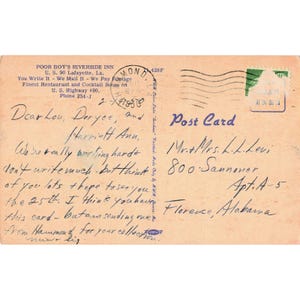 POOR BOY'S RIVERSIDE INN
U. S. 90 Lafayette, La.
You Write It - We Mail It - We Pay Postage
Finest Restaurant and Cocktail Room on
U. S. Highway #90,
Phone 234-1
Post Card
Dear Lou, Doryce, and
Harriett Ann,
We're really working hard
don't write much. But think
of you lots & hope to see you
the 25th. I think you have
this card - but am sending one
from Hammond for your collection.
Mr. & Mrs. L. L. Levi
800 Sannoner
Apt. A-5
Florence, Alabama